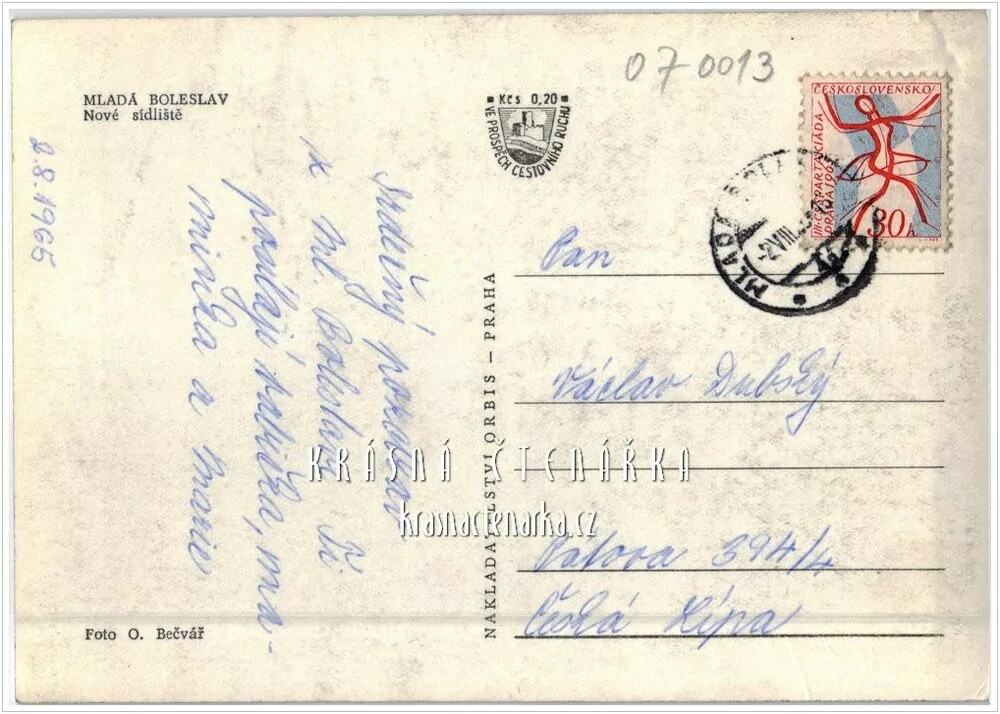 070013
MLADÁ BOLESLAV
Nové sídliště
Kčs 0,20
VE PROSPĚCH CESTOVNÍHO RUCHU
ČESKOSLOVENSKO
III. CELOST. SPARTAKIÁDA
PRAHA 1965
30 h
MLADÁ BOLESLAV
-2.VIII.
2.8.1965
Srdečný pozdrav
z Ml. Boleslavi Ti
posílají babička, ma-
minka a Marie
NAKLADATELSTVÍ ORBIS – PRAHA
Pan
Václav Dubský
Pátova 394/4
Česká Lípa
KRÁSNÁ ČTENÁŘKA
krasnactenarka.cz
Foto O. Bečvář